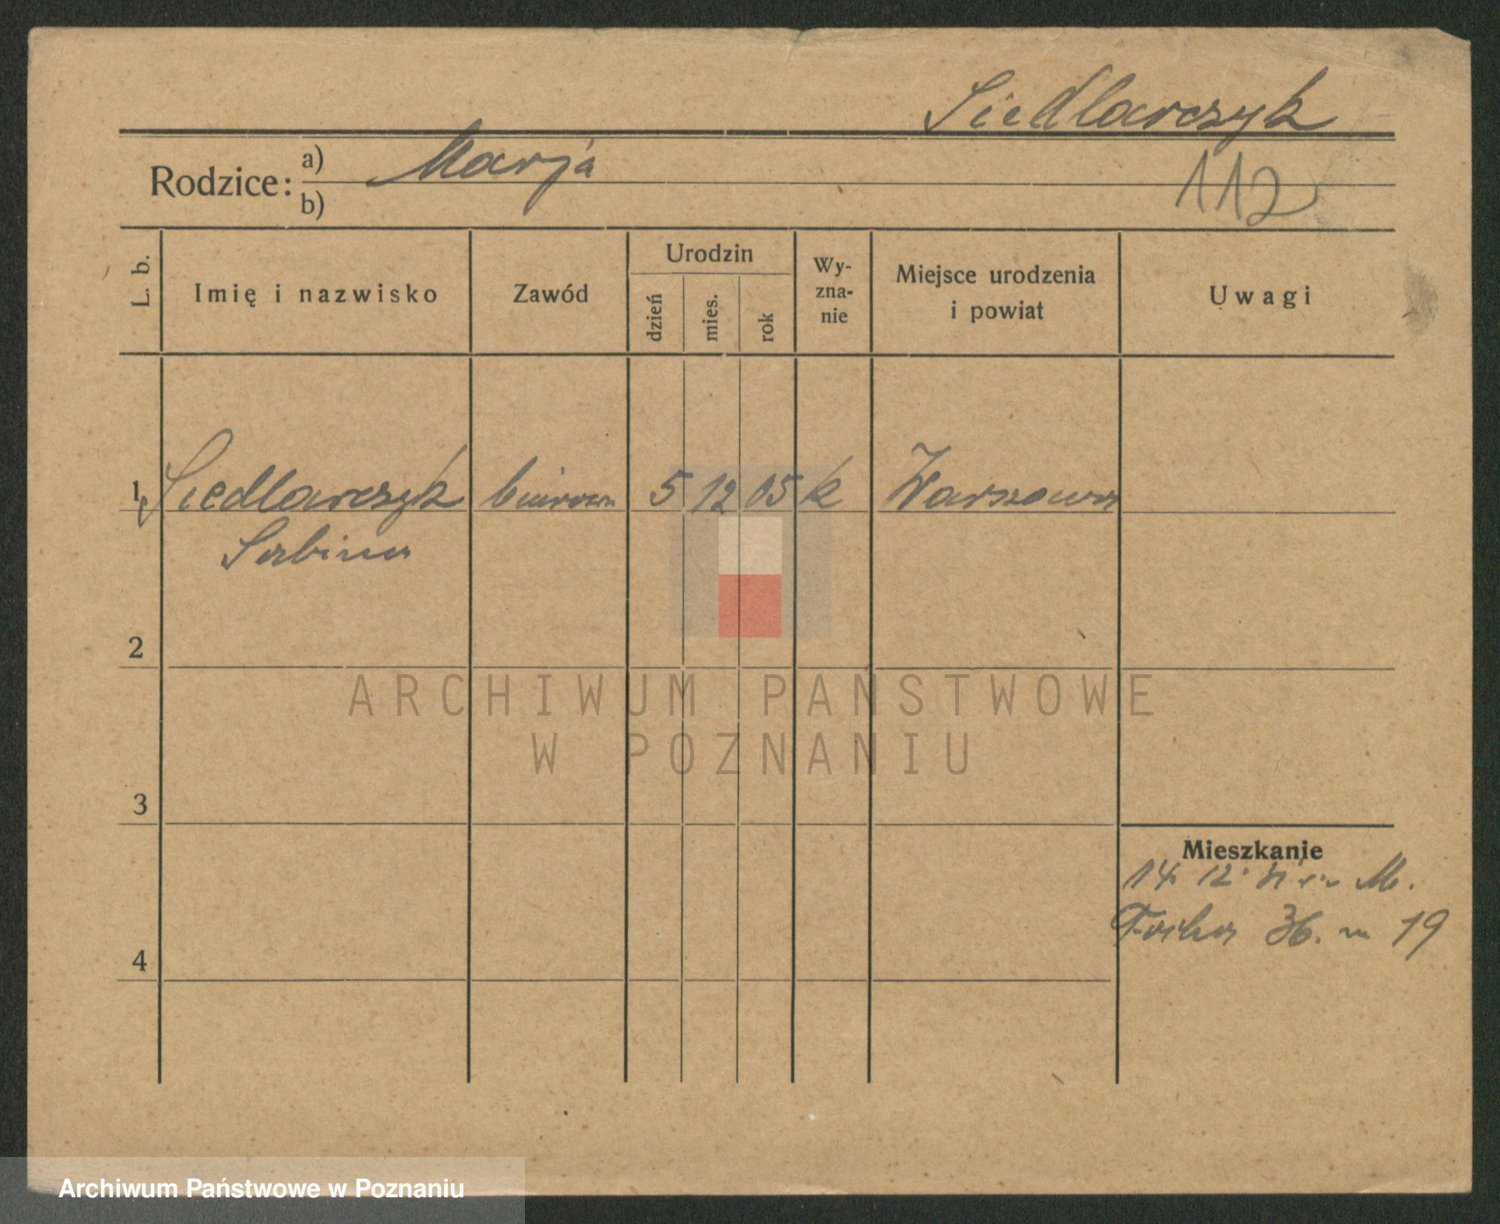 Siedlarczyk
Rodzice: a) Marja
b)
112
L. b.
Imię i nazwisko
Zawód
Urodzin
dzień
mies.
rok
Wy-
zna-
nie
Miejsce urodzenia
i powiat
Uwagi
1 Siedlarczyk biurow 5 12 05 k Warszawa
Sabina
2
ARCHIWUM PANSTWOWE
W POZNANIU
3
Mieszkanie
14 12 M.
36. m 19
4
Archiwum Państwowe w Poznaniu